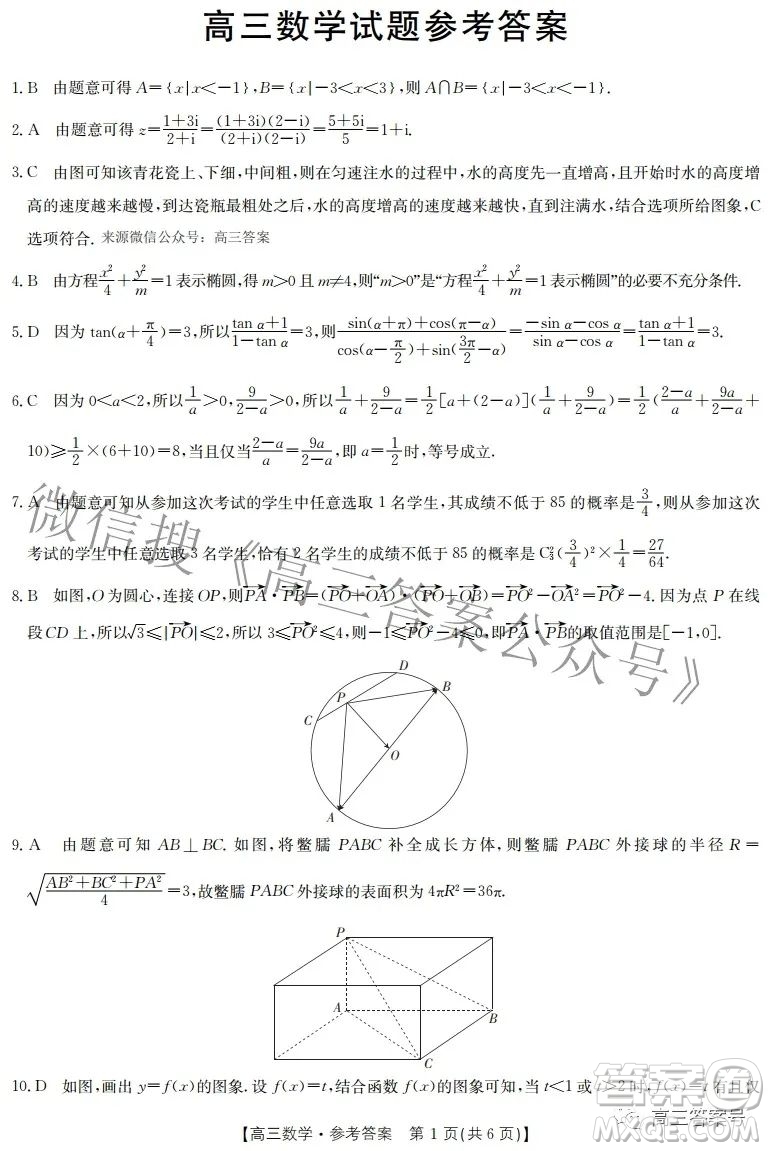 高三数学试题参考答案
1. B 由题意可得 A={x|x<-1},B={x|-3<x<3},则 A∩B={x|-3<x<-1}.
2. A 由题意可得 z=\frac{1+3i}{2+i}=\frac{(1+3i)(2-i)}{(2+i)(2-i)}=\frac{5+5i}{5}=1+i.
3. C 由图可知该青花瓷上、下细,中间粗,则在匀速注水的过程中,水的高度先一直增高,且开始时水的高度增
高的速度越来越慢,到达瓷瓶最粗处之后,水的高度增高的速度越来越快,直到注满水,结合选项所给图象,C
选项符合. 来源微信公众号:高三答案
4. B 由方程\frac{x²}{4}+\frac{y²}{m}=1表示椭圆,得 m>0 且 m≠4,则“m>0”是“方程\frac{x²}{4}+\frac{y²}{m}=1 表示椭圆”的必要不充分条件.
5. D 因为 tan(α+\frac{π}{4})=3,所以\frac{tan α+1}{1-tan α}=3,则\frac{sin(α+π)+cos(π-α)}{cos(α-\frac{π}{2})+sin(\frac{3π}{2}-α)}=\frac{-sin α-cos α}{sin α-cos α}=\frac{tan α+1}{1-tan α}=3.
6. C 因为 0<a<2,所以\frac{1}{a}>0,\frac{9}{2-a}>0,所以\frac{1}{a}+\frac{9}{2-a}=\frac{1}{2}[a+(2-a)](\frac{1}{a}+\frac{9}{2-a})=\frac{1}{2}(\frac{2-a}{a}+\frac{9a}{2-a}+
10)≥\frac{1}{2}×(6+10)=8,当且仅当\frac{2-a}{a}=\frac{9a}{2-a},即 a=\frac{1}{2}时,等号成立.
7. A 由题意可知从参加这次考试的学生中任意选取 1 名学生,其成绩不低于 85 的概率是\frac{3}{4},则从这次
考试的学生中任意选取 3 名学生,恰有 2 名学生的成绩不低于 85 的概率是 C₃²(\frac{3}{4})²×\frac{1}{4}=\frac{27}{64}.
8. B 如图,O 为圆心,连接 OP,则\overrightarrow{PA}·\overrightarrow{PB}=(\overrightarrow{PO}+\overrightarrow{OA})·(\overrightarrow{PO}+\overrightarrow{OB})=\overrightarrow{PO}²-\overrightarrow{OA}²=\overrightarrow{PO}²-4. 因为点 P 在线
段 CD 上,所以√3≤|\overrightarrow{PO}|≤2,所以 3≤\overrightarrow{PO}²≤4,则-1≤\overrightarrow{PO}²-4≤0,即\overrightarrow{PA}·\overrightarrow{PB}的取值范围是[-1,0].
微信搜《高三答案公众号》
D
P
B
C
O
A
9. A 由题意可知 AB⊥BC. 如图,将鳖臑 PABC 补全成长方体,则鳖臑 PABC 外接球的半径 R=
\sqrt{\frac{AB²+BC²+PA²}{4}}=3,故鳖臑 PABC 外接球的表面积为 4πR²=36π.
P
A
B
C
10. D 如图,画出 y=f(x)的图象. 设 f(x)=t,结合函数 f(x)的图象可知,当 t<1 或 t>2 时,f(x)=t 有且仅
答案圈
高三答案号
MXQE.COM
【高三数学·参考答案 第 1 页(共 6 页)】